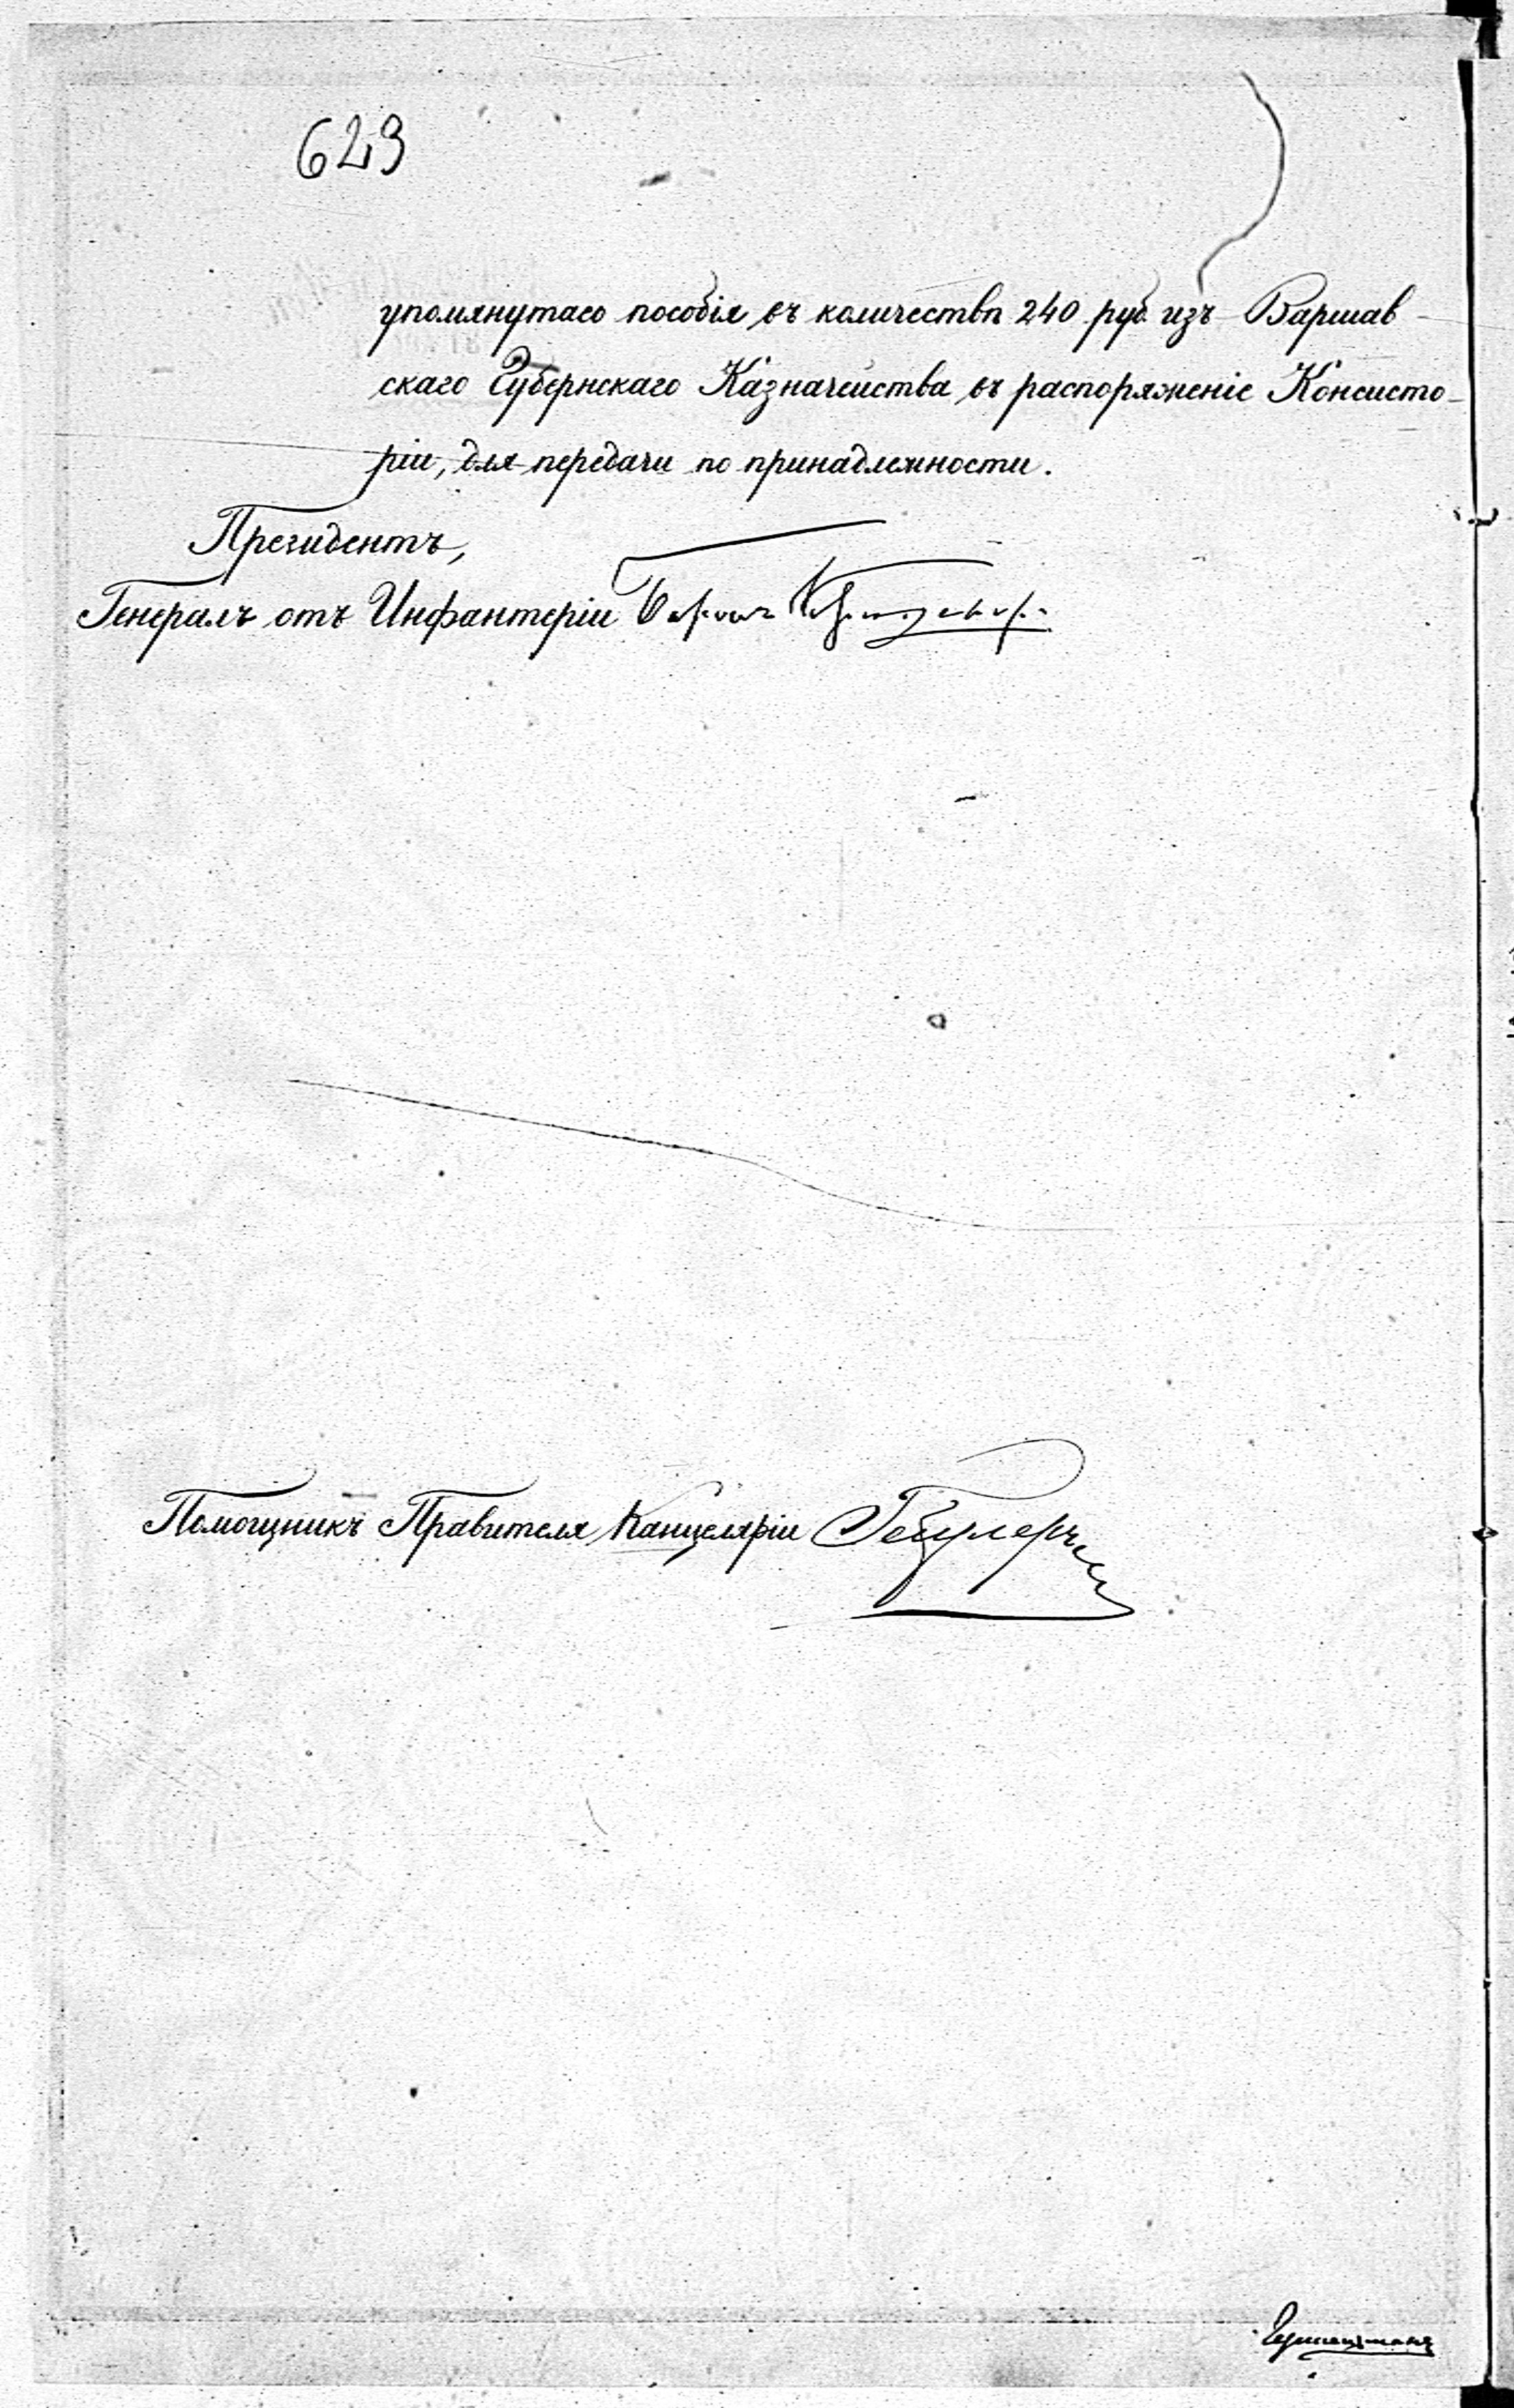 623
упомянутаго пособія въ количествѣ 240 руб. изъ Варшав-
скаго Губернскаго Казначейства въ распоряженіе Консисто-
ріи, для передачи по принадлежности.
Президентъ,
Генералъ отъ Инфантеріи Баронъ
Помощникъ Правителя Канцеляріи